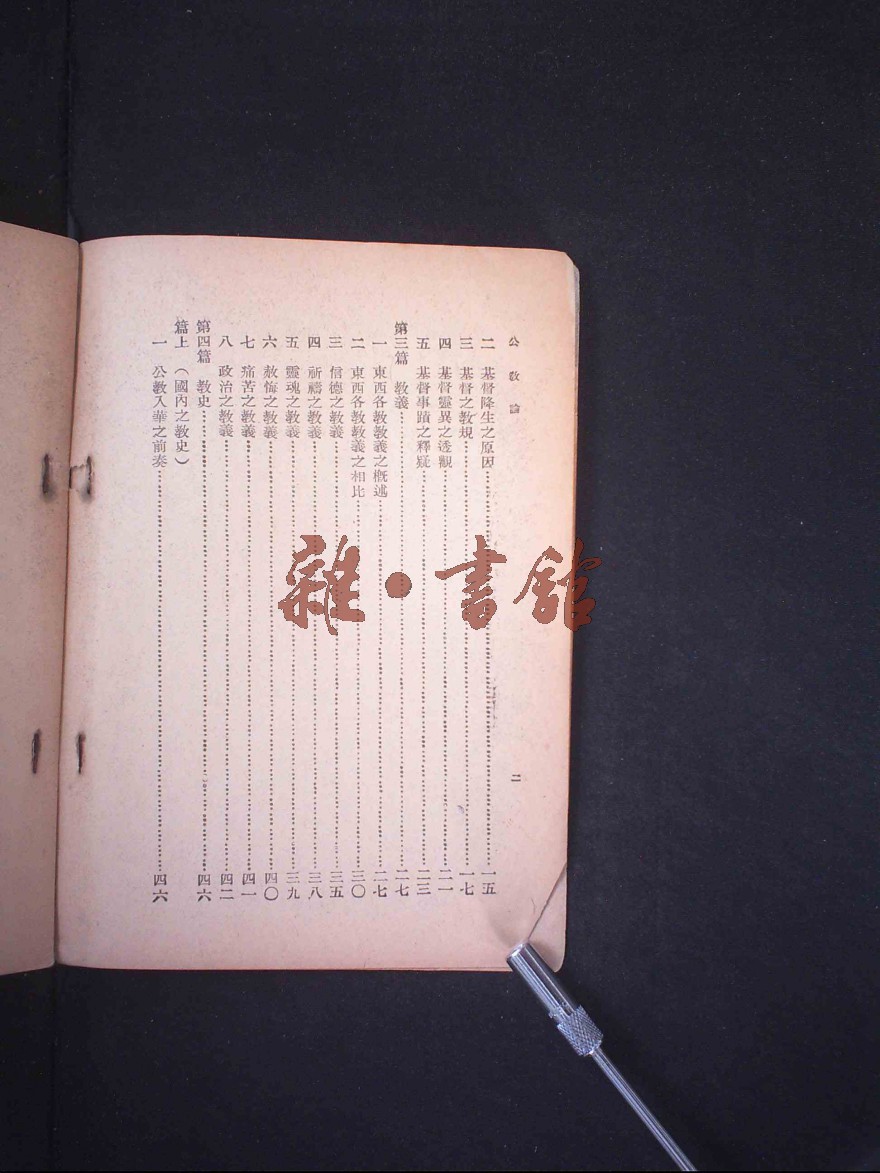 公教論
二
二 基督降生之原因……一五
三 基督之教規……一七
四 基督靈異之透觀……二一
五 基督事蹟之釋疑……二三
第三篇 教義……二七
一 東西各教教義之概述……二七
二 東西各教教義之相比……三〇
三 信德之教義……三五
四 祈禱之教義……三八
五 靈魂之教義……三九
六 赦悔之教義……四〇
七 痛苦之教義……四一
八 政治之教義……四二
第四篇 教史……四六
篇上(國內之教史)
一 公教入華之前奏……四六
雜·書館